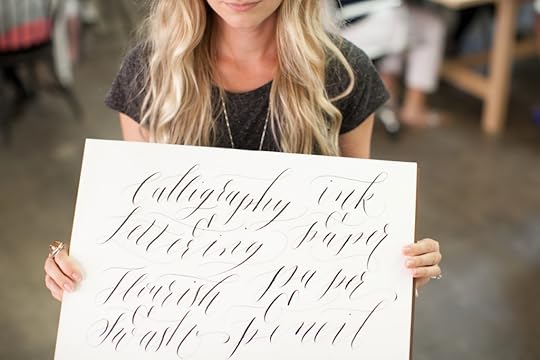 Calligraphy ink
& &
lettering paper
Flourish paper
& &
Swash pencil